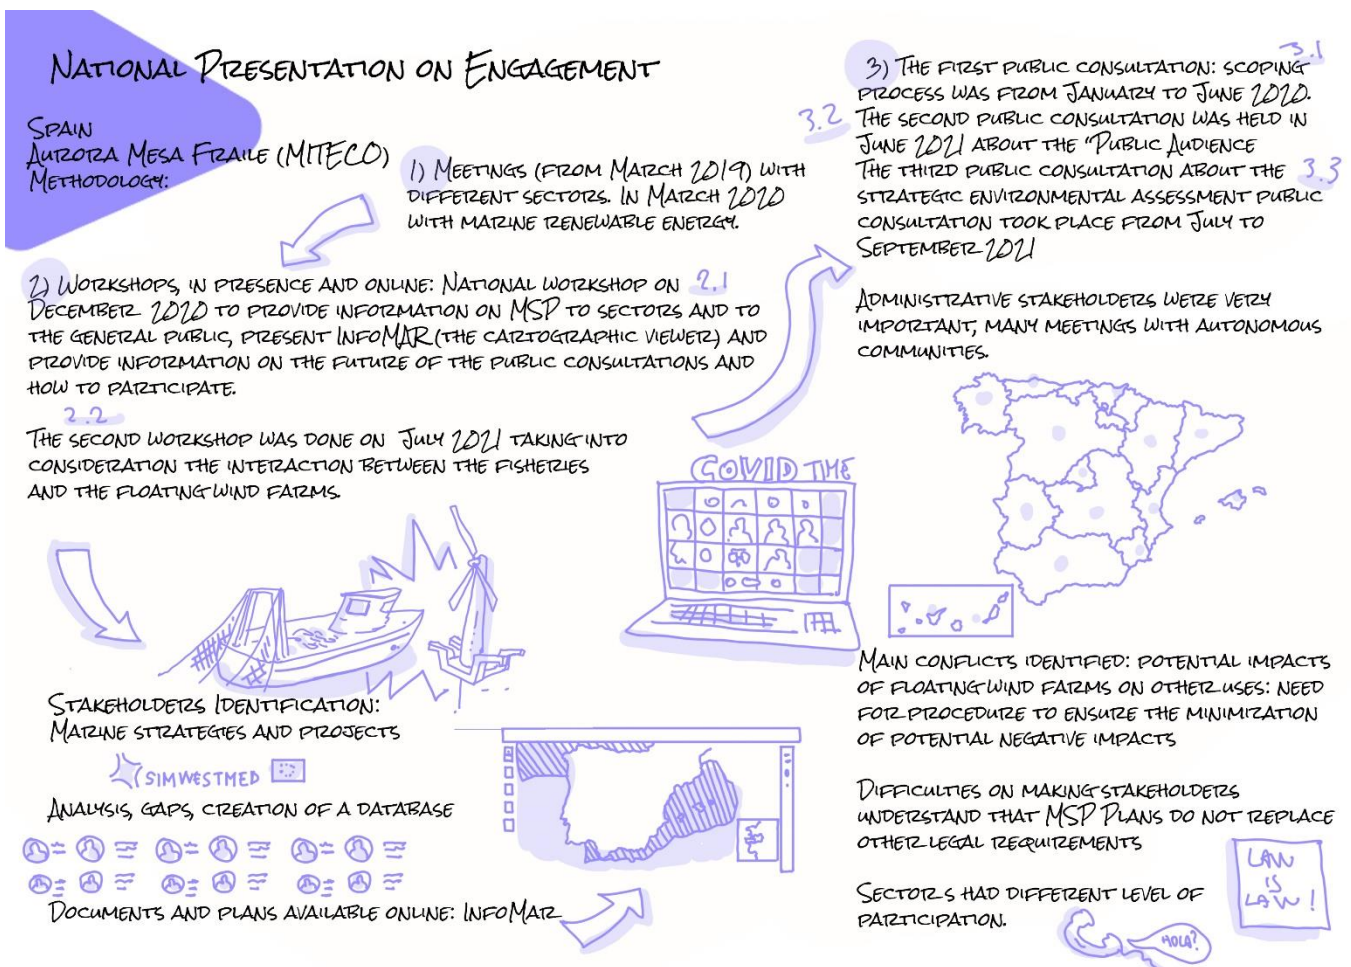 National Presentation on Engagement
Spain
Aurora Mesa Fraile (MITECO)
Methodology:
1) Meetings (from March 2019) with
different sectors. In March 2020
with marine renewable energy.
2) Workshops, in presence and online: National workshop on 2.1
December 2020 to provide information on MSP to sectors and to
the general public, present InfoMAR (the cartographic viewer) and
provide information on the future of the public consultations and
how to participate.
2.2
The second workshop was done on July 2021 taking into
consideration the interaction between the fisheries
and the floating wind farms.
Stakeholders Identification:
Marine strategies and projects
SIMWESTMED
Analysis, gaps, creation of a database
Documents and plans available online: InfoMar
COVID TIME
3.1
3) The first public consultation: scoping
process was from January to June 2020.
3.2 The second public consultation was held in
June 2021 about the "Public Audience
The third public consultation about the 3.3
strategic environmental assessment public
consultation took place from July to
September 2021
Administrative stakeholders were very
important, many meetings with autonomous
communities.
Main conflicts identified: potential impacts
of floating wind farms on other uses: need
for procedure to ensure the minimization
of potential negative impacts
Difficulties on making stakeholders
understand that MSP Plans do not replace
other legal requirements
LAW
IS
LAW!
Sectors had different level of
participation.
HOLA?